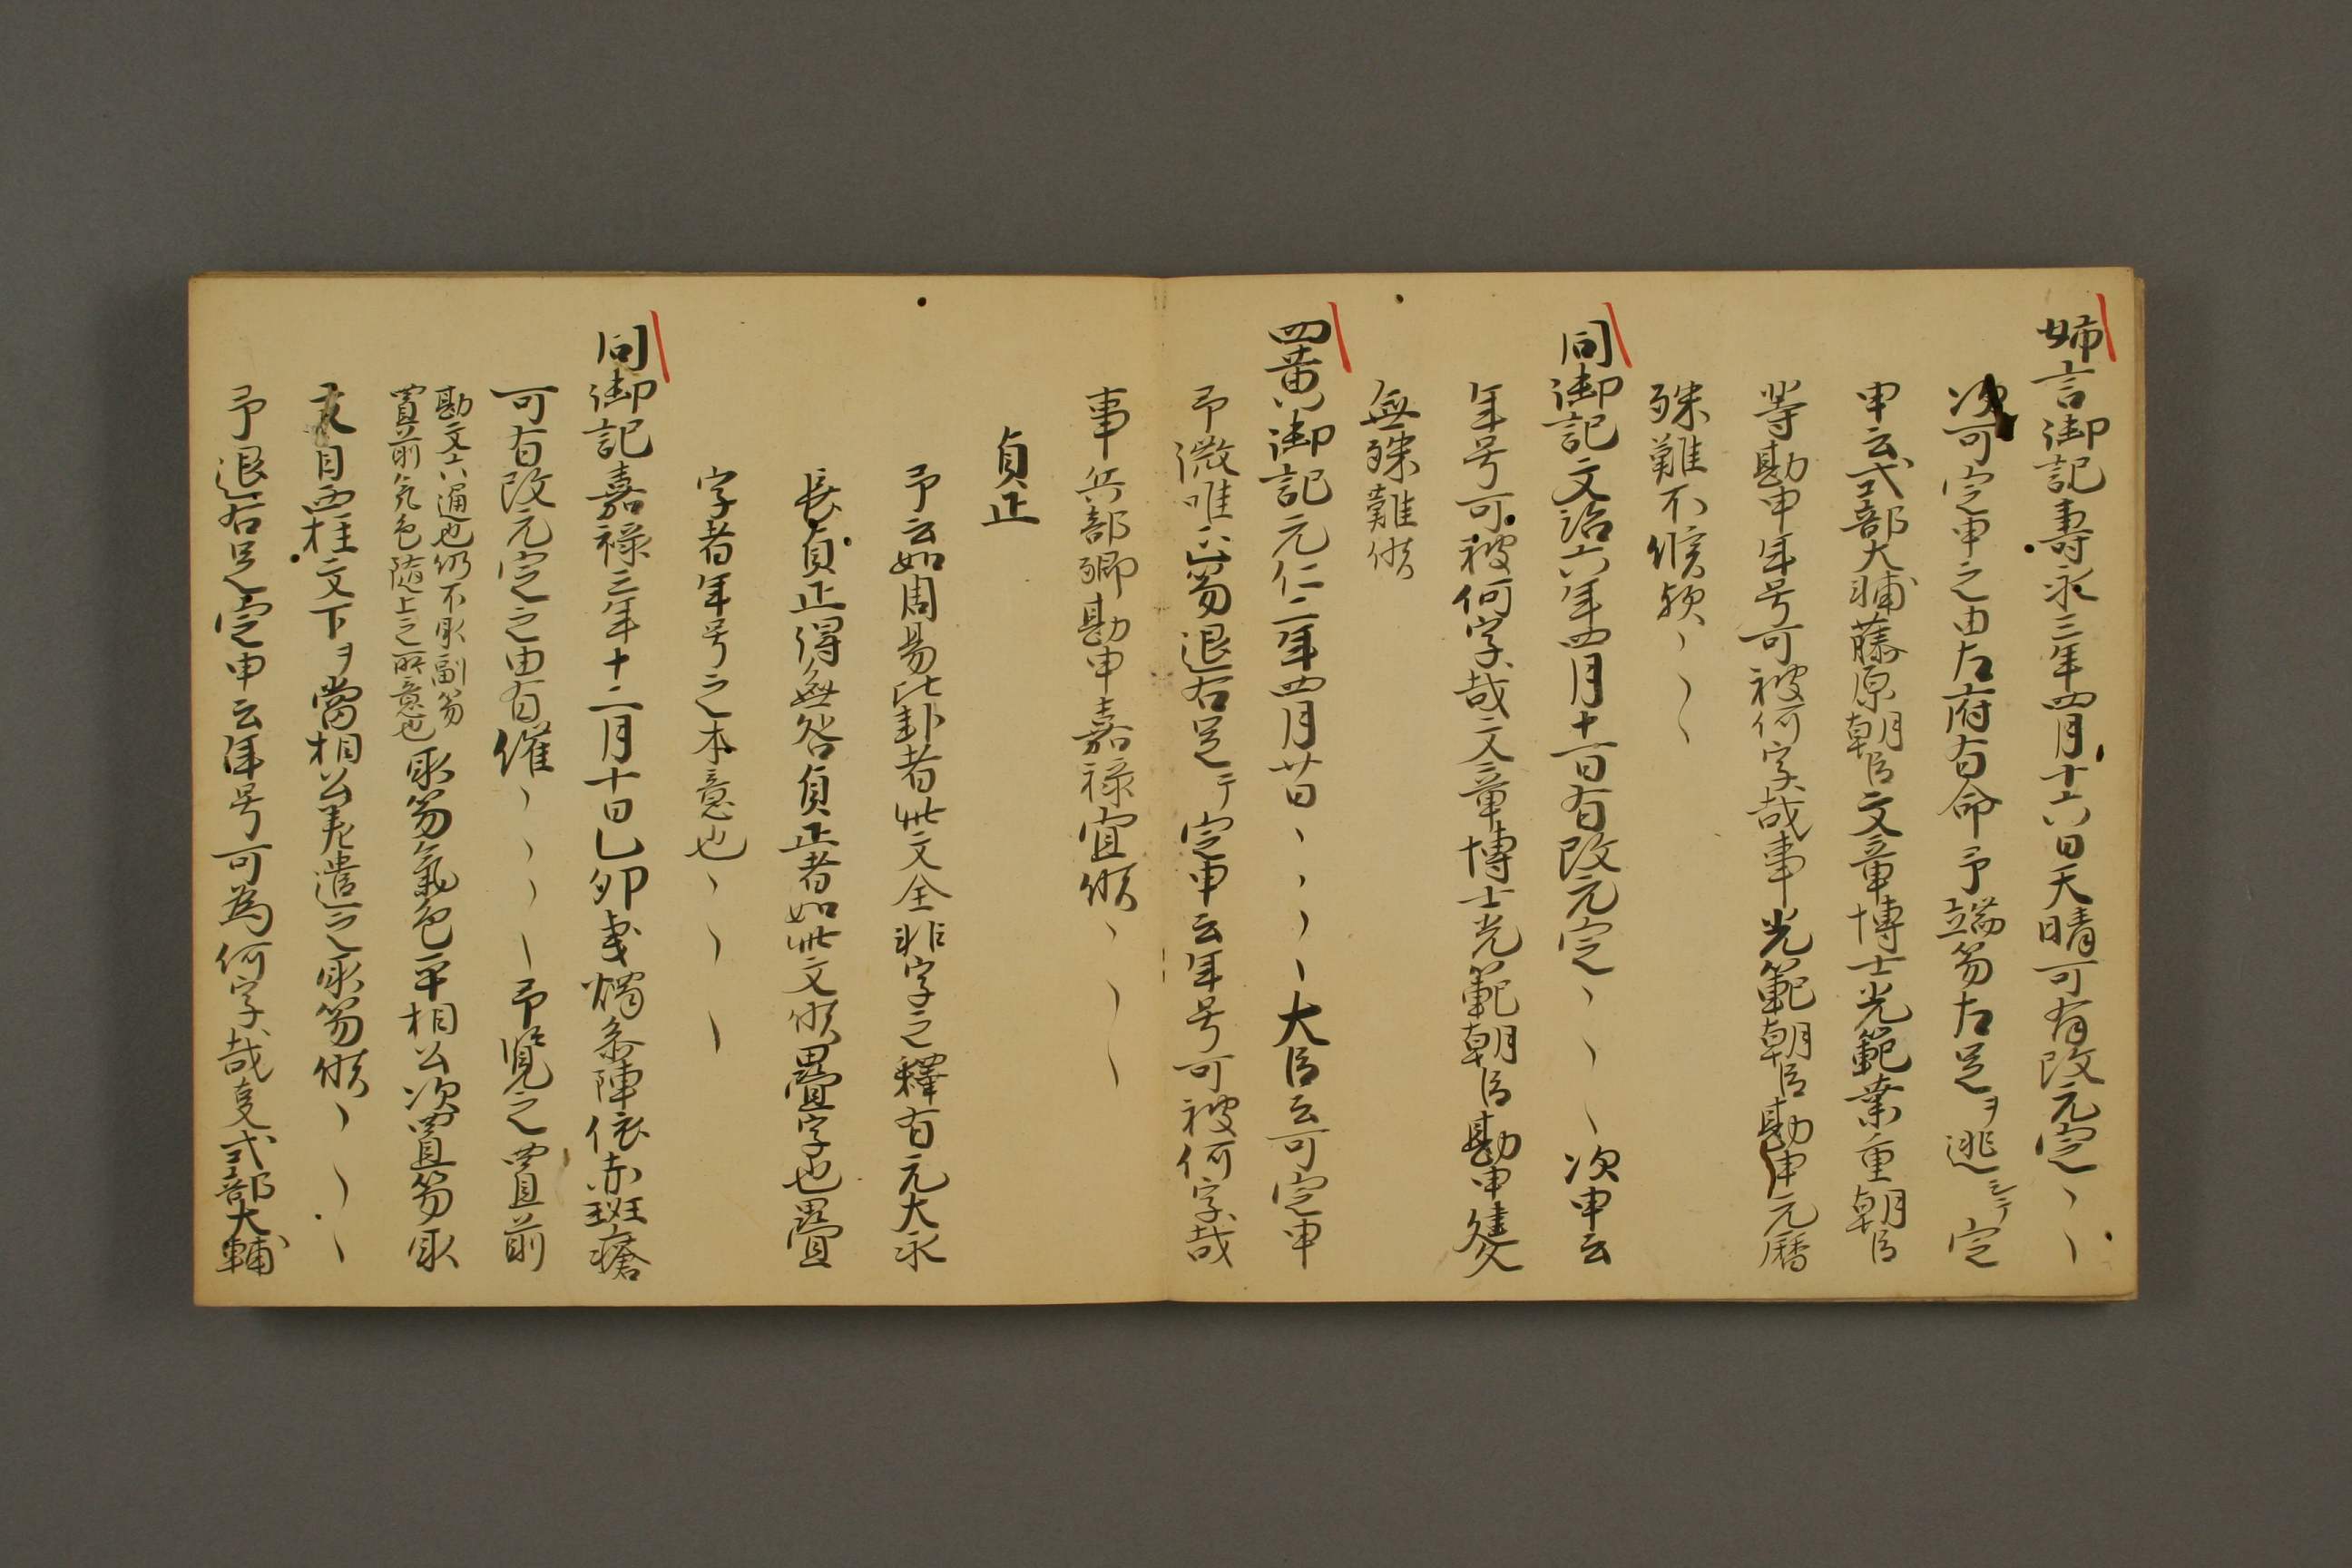 姉言御記寿永三年四月十六日天晴可有改元定〻〻
次可定申之由左府有命予端笏左足ヲ逃シテ定
申云式部大輔藤原朝臣文章博士光範業重朝臣
等勘申年号可被何字哉事光範朝臣勘申元暦
殊難不候欤〻〻〻
同御記文治六年四月十一日有改元定〻〻〻次申云
年号可被何字哉文章博士光範朝臣勘申建久
無殊難候
四黄御記元仁二年四月廿日〻〻〻〻大臣云可定申
予微唯正笏退右足テ定申云年号可被何字哉
事兵部卿勘申嘉禄宜候〻〻〻
貞正
予云如周易比卦者此文全非字之釋有元大永
長貞正得無咎貞正者如此文候疊字也疊
字者年号之本意也〻〻〻
同御記嘉禄三年十二月十日己卯秉燭参陣依赤斑瘡
可有改元定之由有催〻〻〻〻予覧之置前
勘文六通也仍不取副笏
置前気色随上之所意也取笏氣色平相公次置笏取
文自西柱文下ヲ當相公差遣之取笏候〻〻〻
予退右足定申云年号可為何字哉事式部大輔